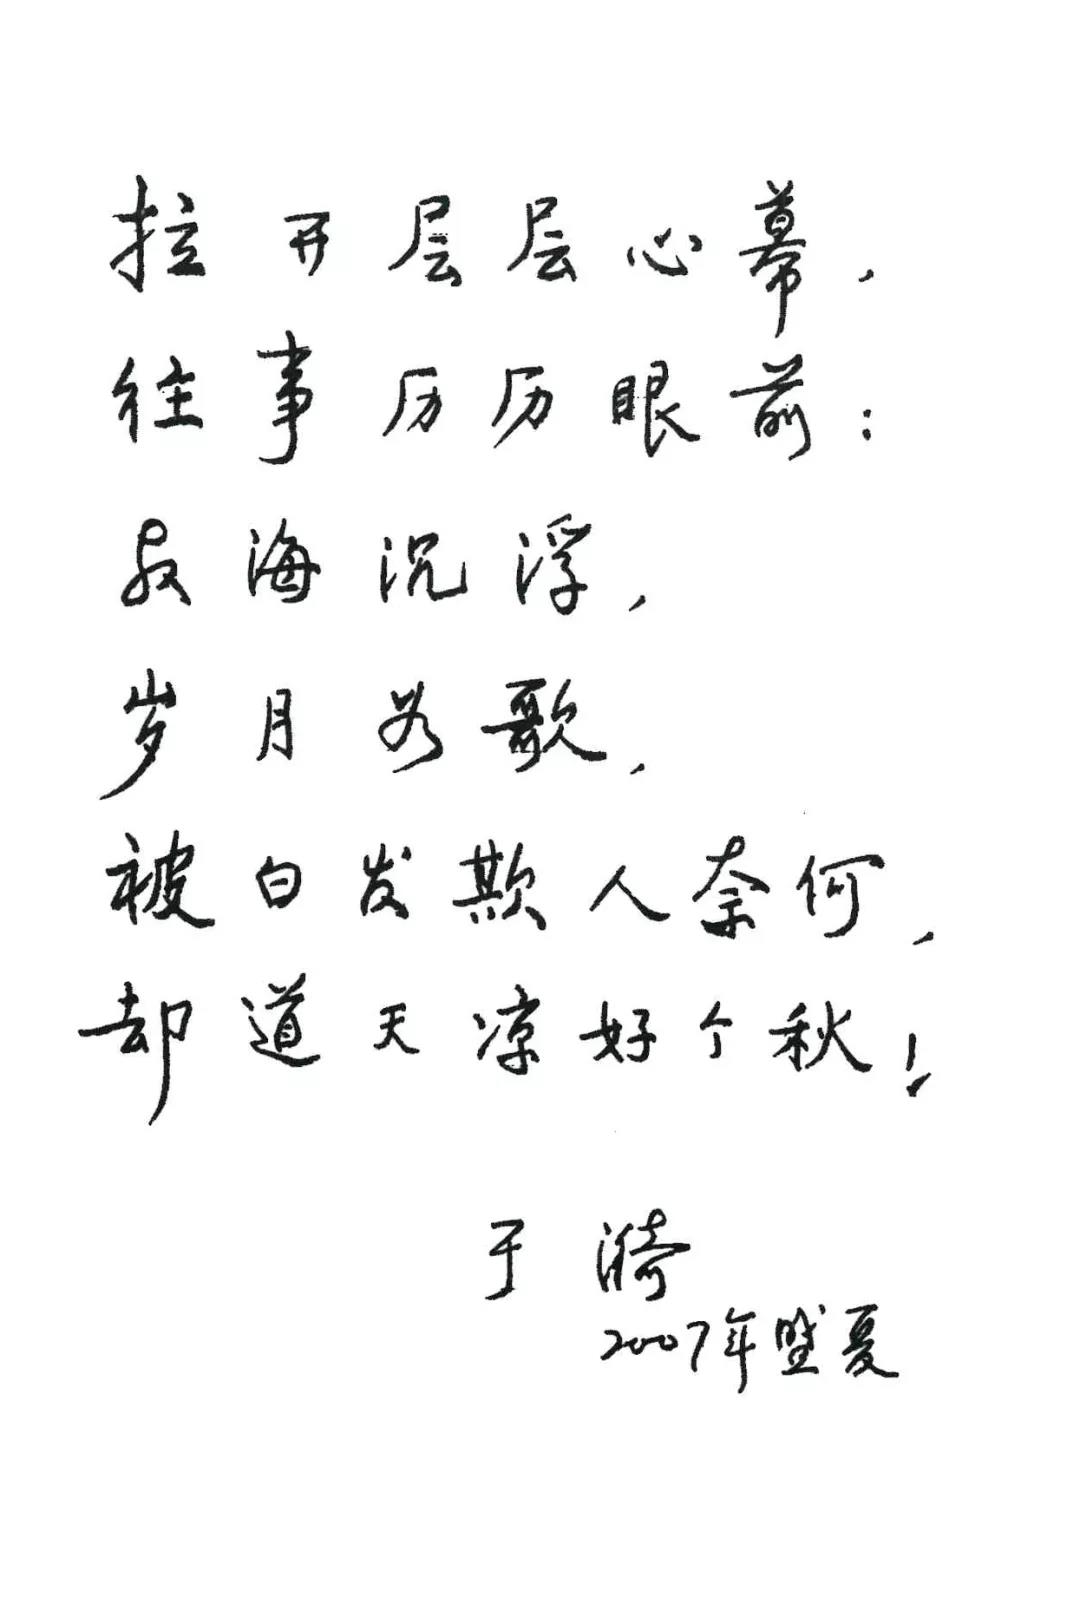 拉开层层心幕，
往事历历眼前：
教海沉浮，
岁月如歌，
被白发欺人奈何，
却道天凉好个秋！
于漪
2007年盛夏